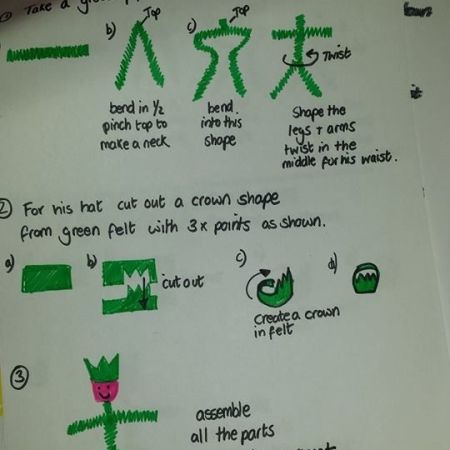 ① Take a
b) Top
c) Top
Twist
bend in ½
pinch top to
make a neck
bend
into this
shape
Shape the
legs + arms
twist in the
middle for his waist.
② For his hat cut out a crown shape
from green felt with 3x points as shown.
a)
b)
cut out
c)
create a crown
in felt
d)
③
assemble
all the parts